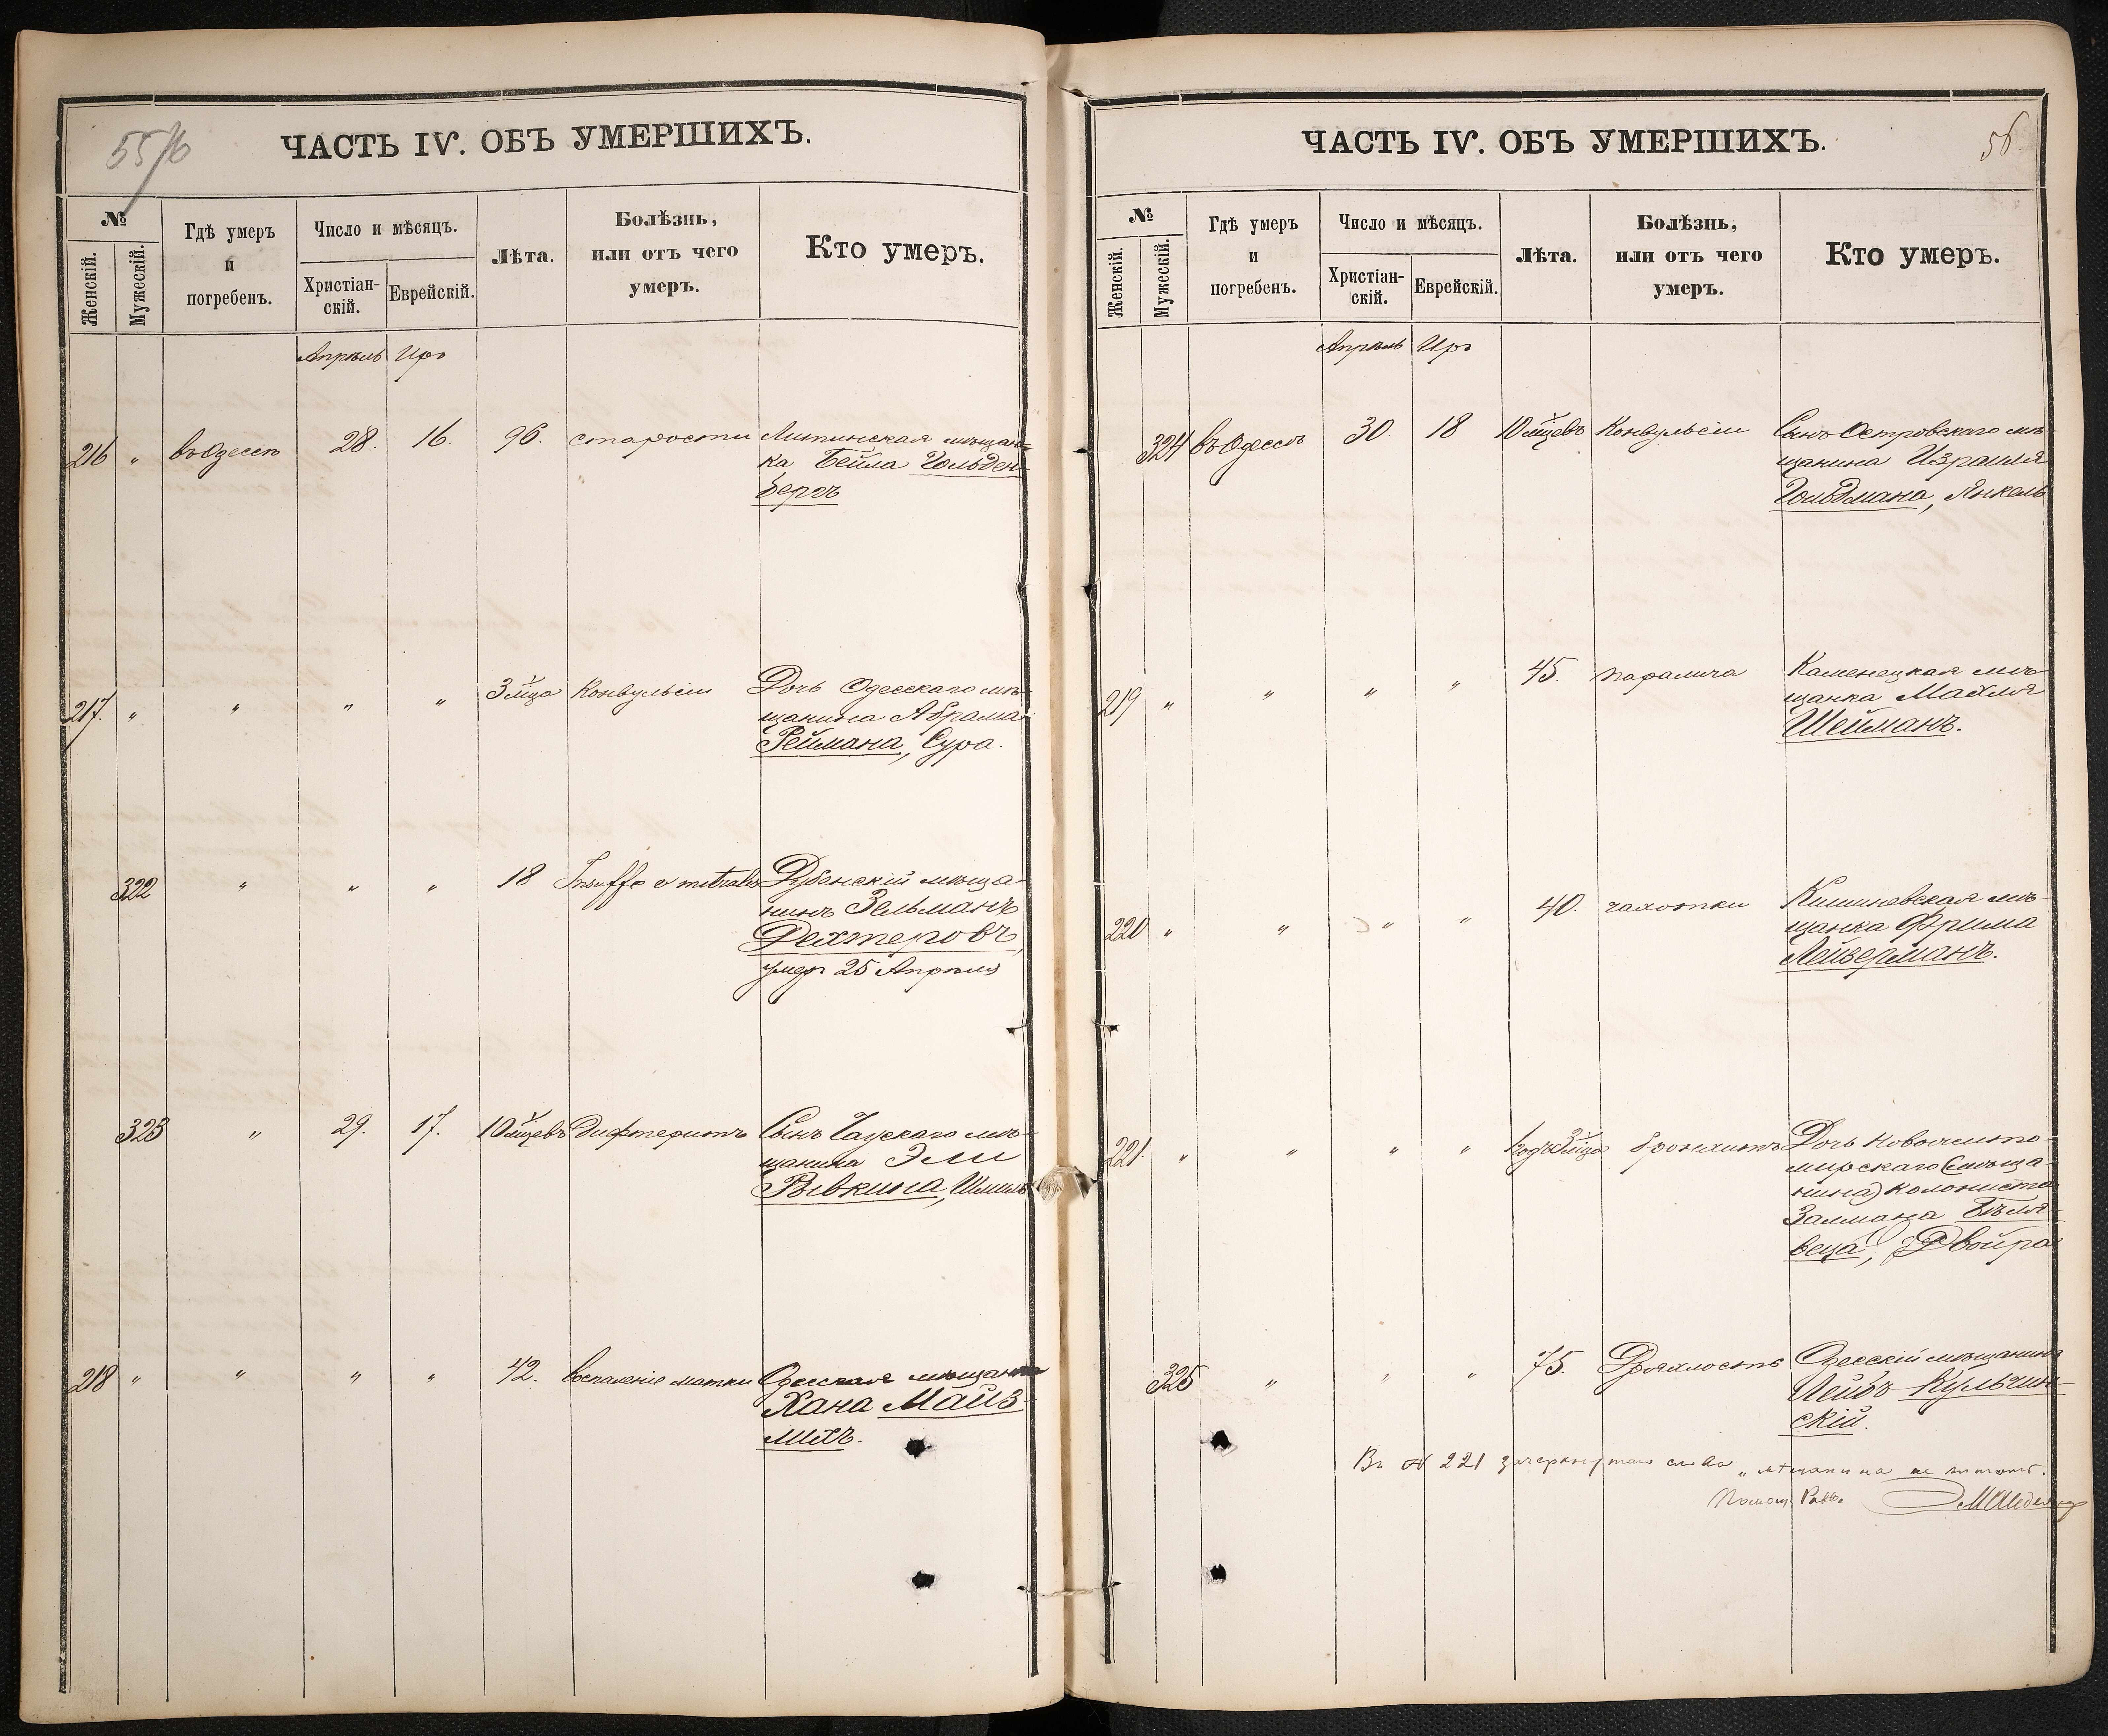 55/6
ЧАСТЬ IV. ОБЪ УМЕРШИХЪ.
№
Женскій.
Мужескій.
Гдѣ умеръ
и
погребенъ.
Число и мѣсяцъ.
Христіан-
скій.
Еврейскій.
Лѣта.
Болѣзнь,
или отъ чего
умеръ.
Кто умеръ.
Апрѣль Иръ
216 " въ Одессѣ 28. 16. 96. старости Липинская мѣщан-
ка Бейла Гольден-
бергъ
217. " " " " 3 мца Конвульсіи Дочь Одесскаго мѣ-
щанина Абрама
Реймана, Сура.
322 " " " 18 Insuffe v mitralis Дубенскій мѣща-
нинъ Зельманъ
Дехтеровъ,
умеръ 25 Апрѣля
323 " 29. 17. 10 мцевъ Дифтеритъ Сынъ Чаускаго мѣ-
щанина Эли
Рывкина, Шмиль
218 " " " " 42. воспаленіе матки Одесская мѣщанка
Хана Майз-
лихъ.
ЧАСТЬ IV. ОБЪ УМЕРШИХЪ.
56.
№
Женскій.
Мужескій.
Гдѣ умеръ
и
погребенъ.
Число и мѣсяцъ.
Христіан-
скій.
Еврейскій.
Лѣта.
Болѣзнь,
или отъ чего
умеръ.
Кто умеръ.
Апрѣль Иръ
324 въ Одессѣ 30. 18 10 мцевъ Конвульсіи Сынъ Островскаго мѣ-
щанина Израиля
Гольдмана, Янкель
219 " " " " 45. паралича Каменецкая мѣ-
щанка Махля
Шейманъ.
220 " " " " 40. чахотки Кишиневская мѣ-
щанка Фрима
Лейзерманъ.
221. " " " " 1 годъ 3 мца бронхитъ Дочь Новожито-
мирскаго (мѣща-
нина) колониста
Залмана Бѣля-
веца, Двойра
325 " " " 75. Дряхлость Одесскій мѣщанинъ
Лейбъ Кульчин-
скій.
Въ № 221 зачеркнутаго слова „мѣщанина не читать.
Помощ. Равв.